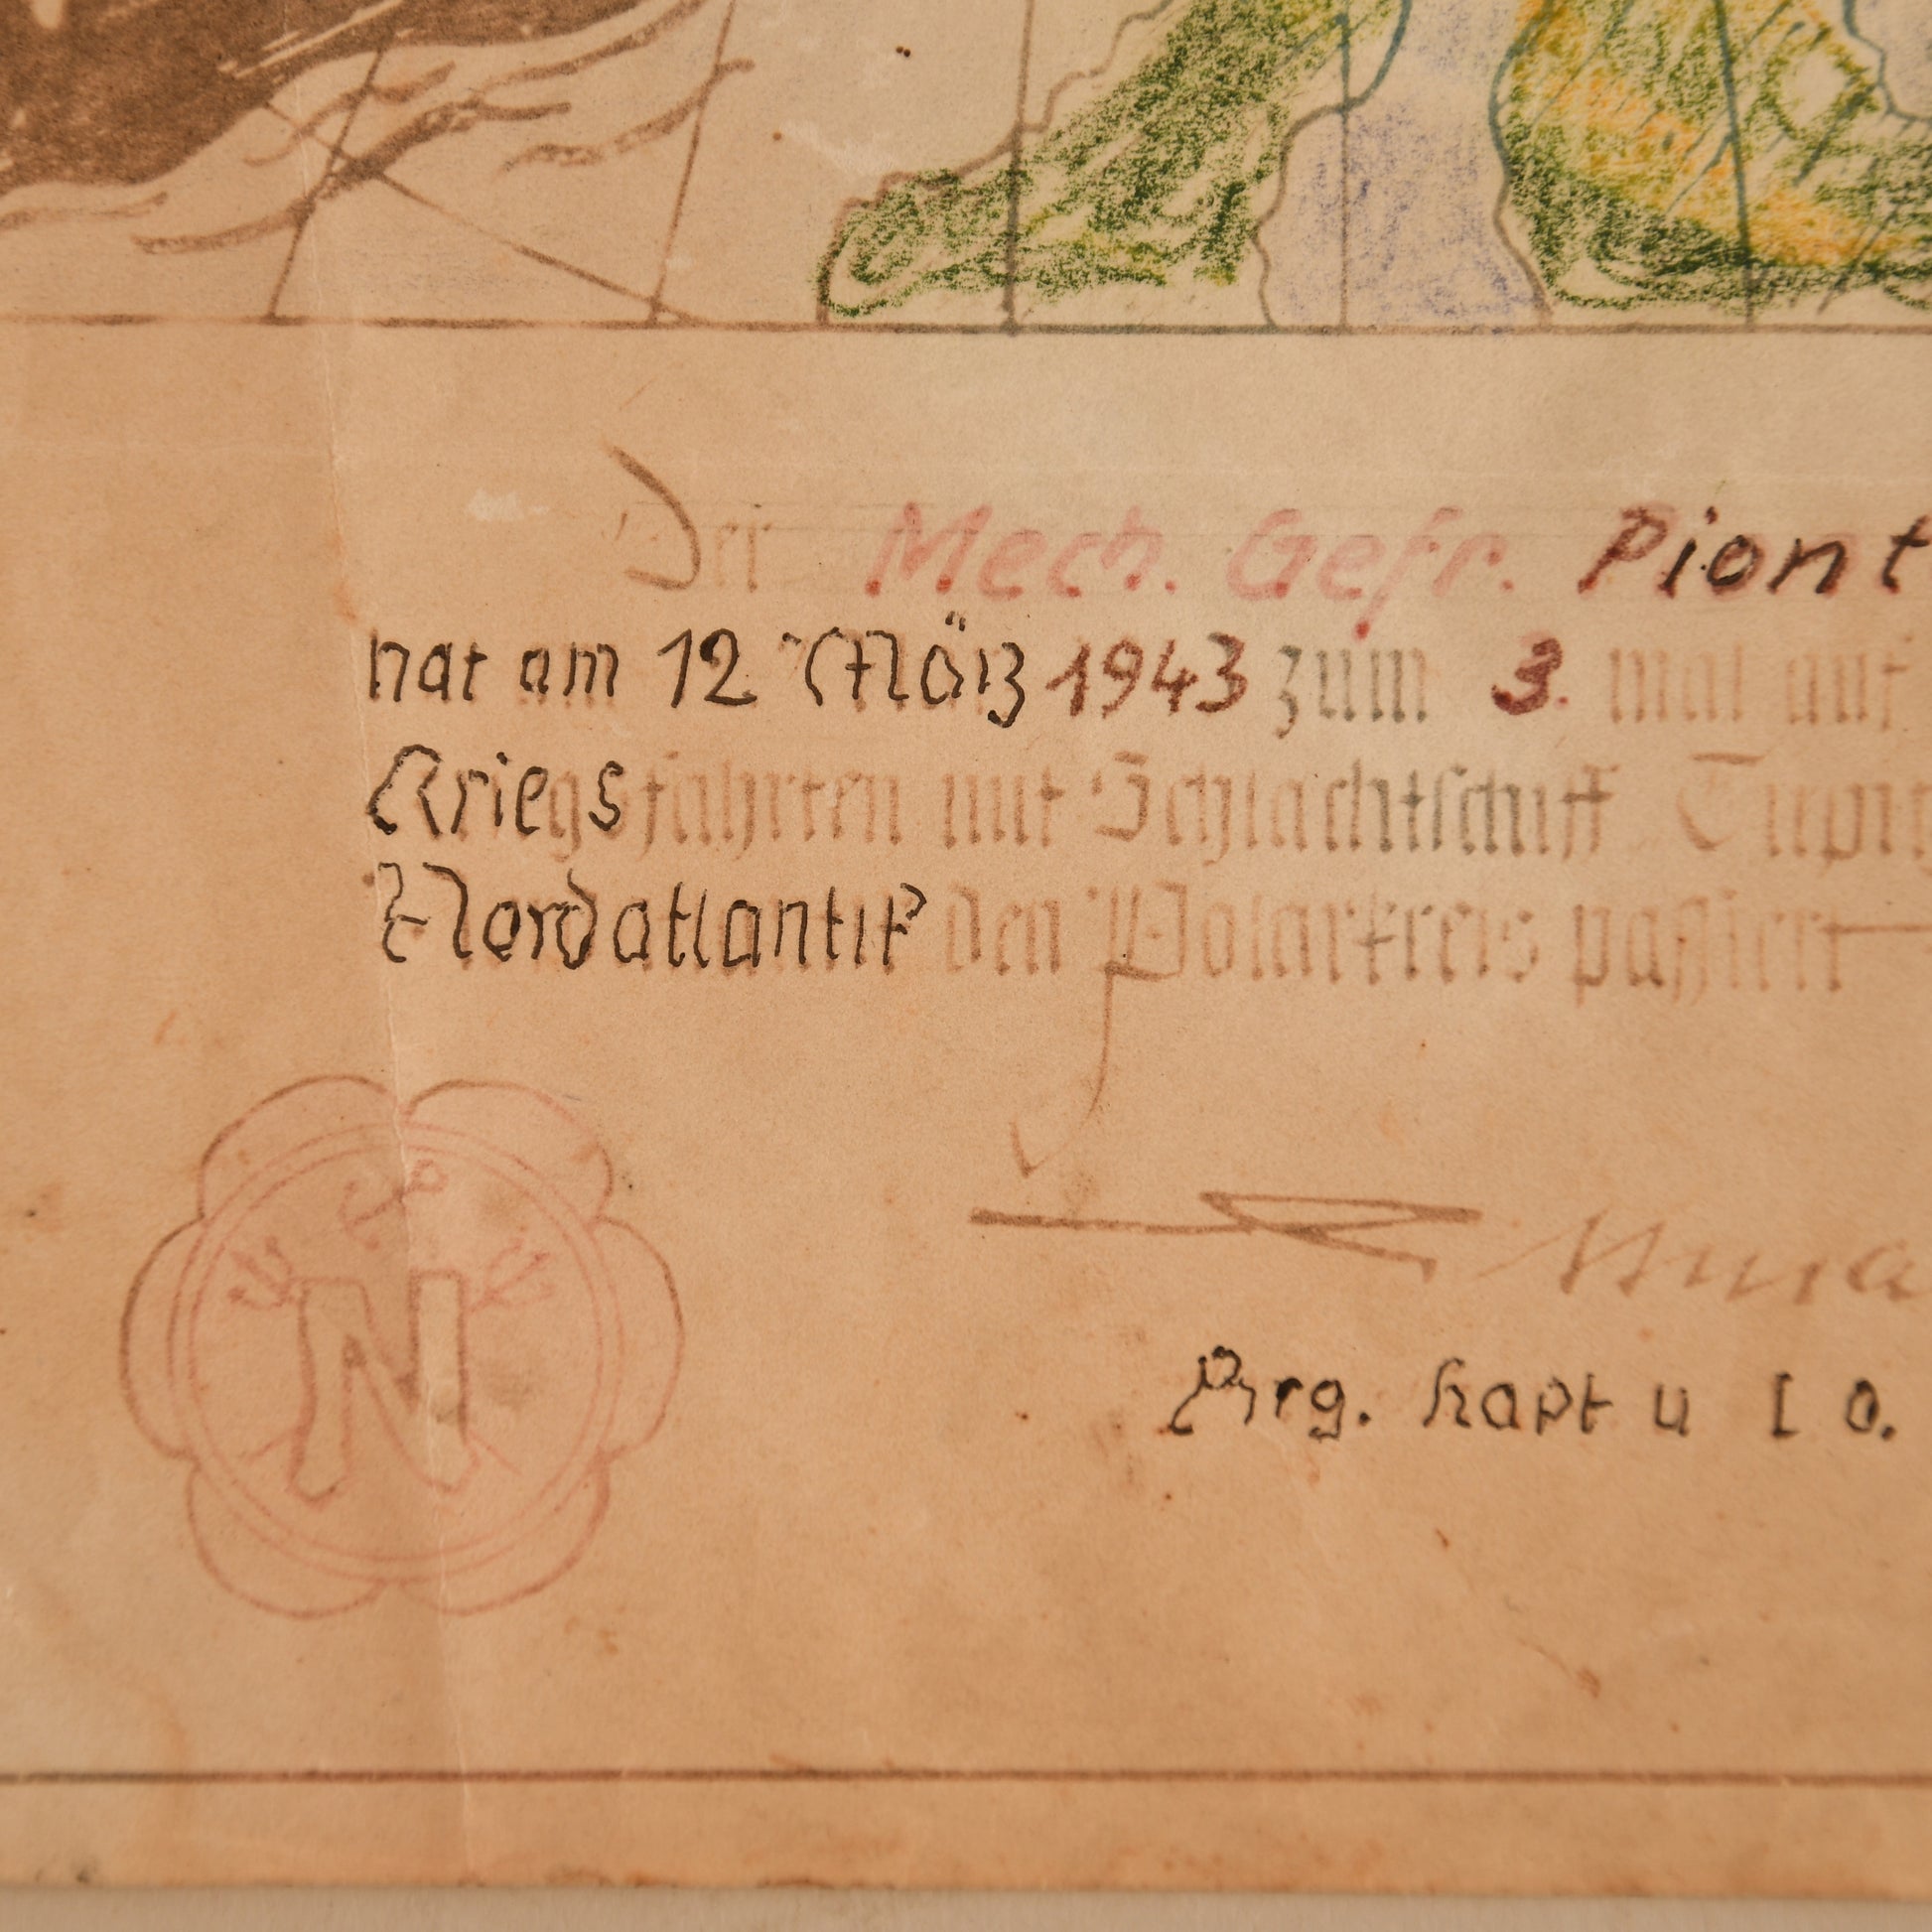 Der Mech. Gefr. Piont
hat am 12 März 1943 zum 3. mal auf
Kriegsfahrten mit Schlachtschiff Tirpi
Nordatlantik den Polarkreis paßiert
N
Kapt u